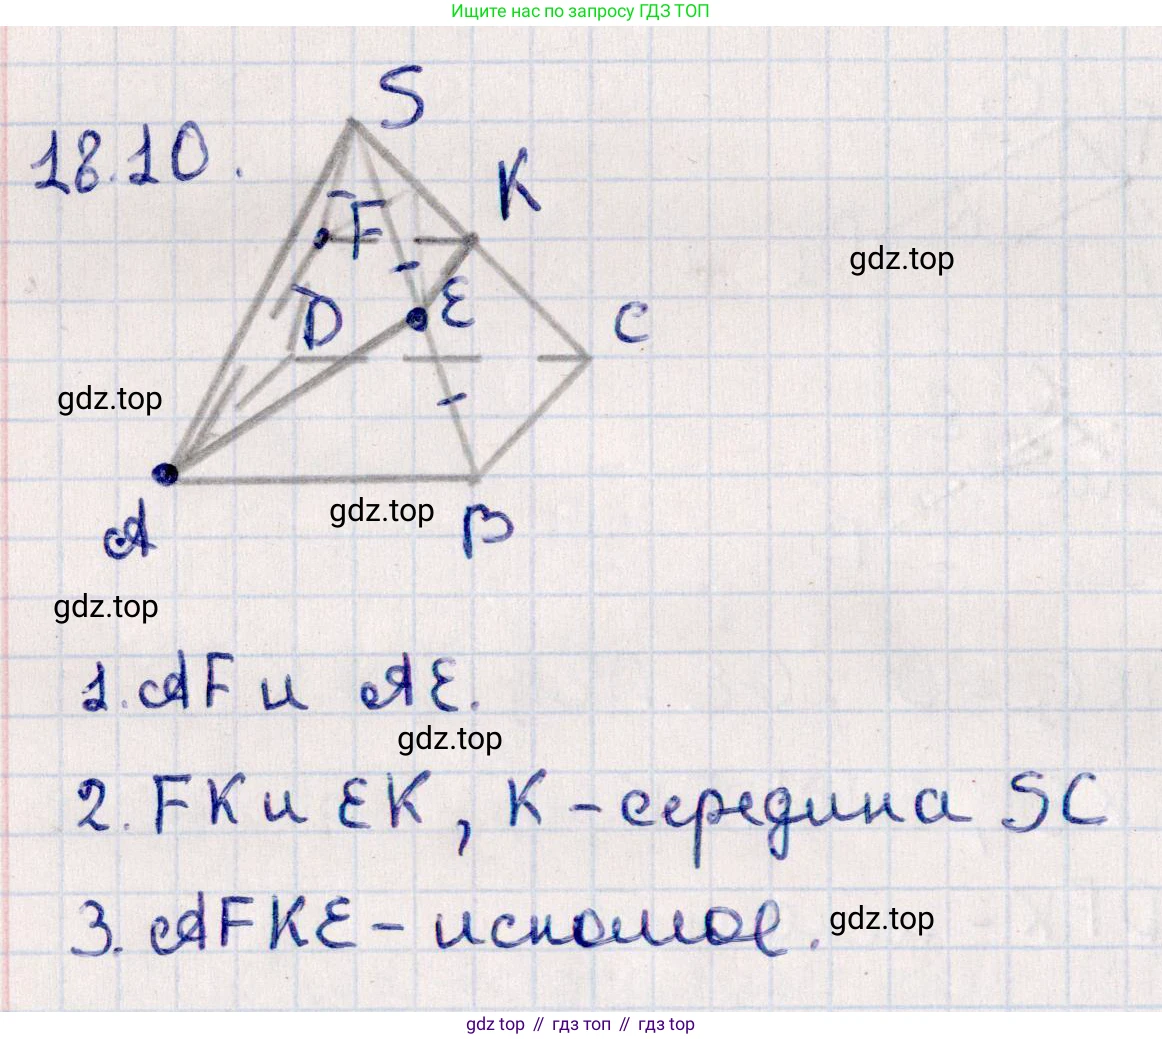 Ищите нас по запросу ГДЗ ТОП
S
18.10.
K
F
gdz.top
E
D
C
gdz.top
A
B
gdz.top
gdz.top
1. AF и AE.
gdz.top
2. FK и EK, K - середина SC
3. AFKE - искомое.
gdz.top
gdz top // гдз топ // гдз top